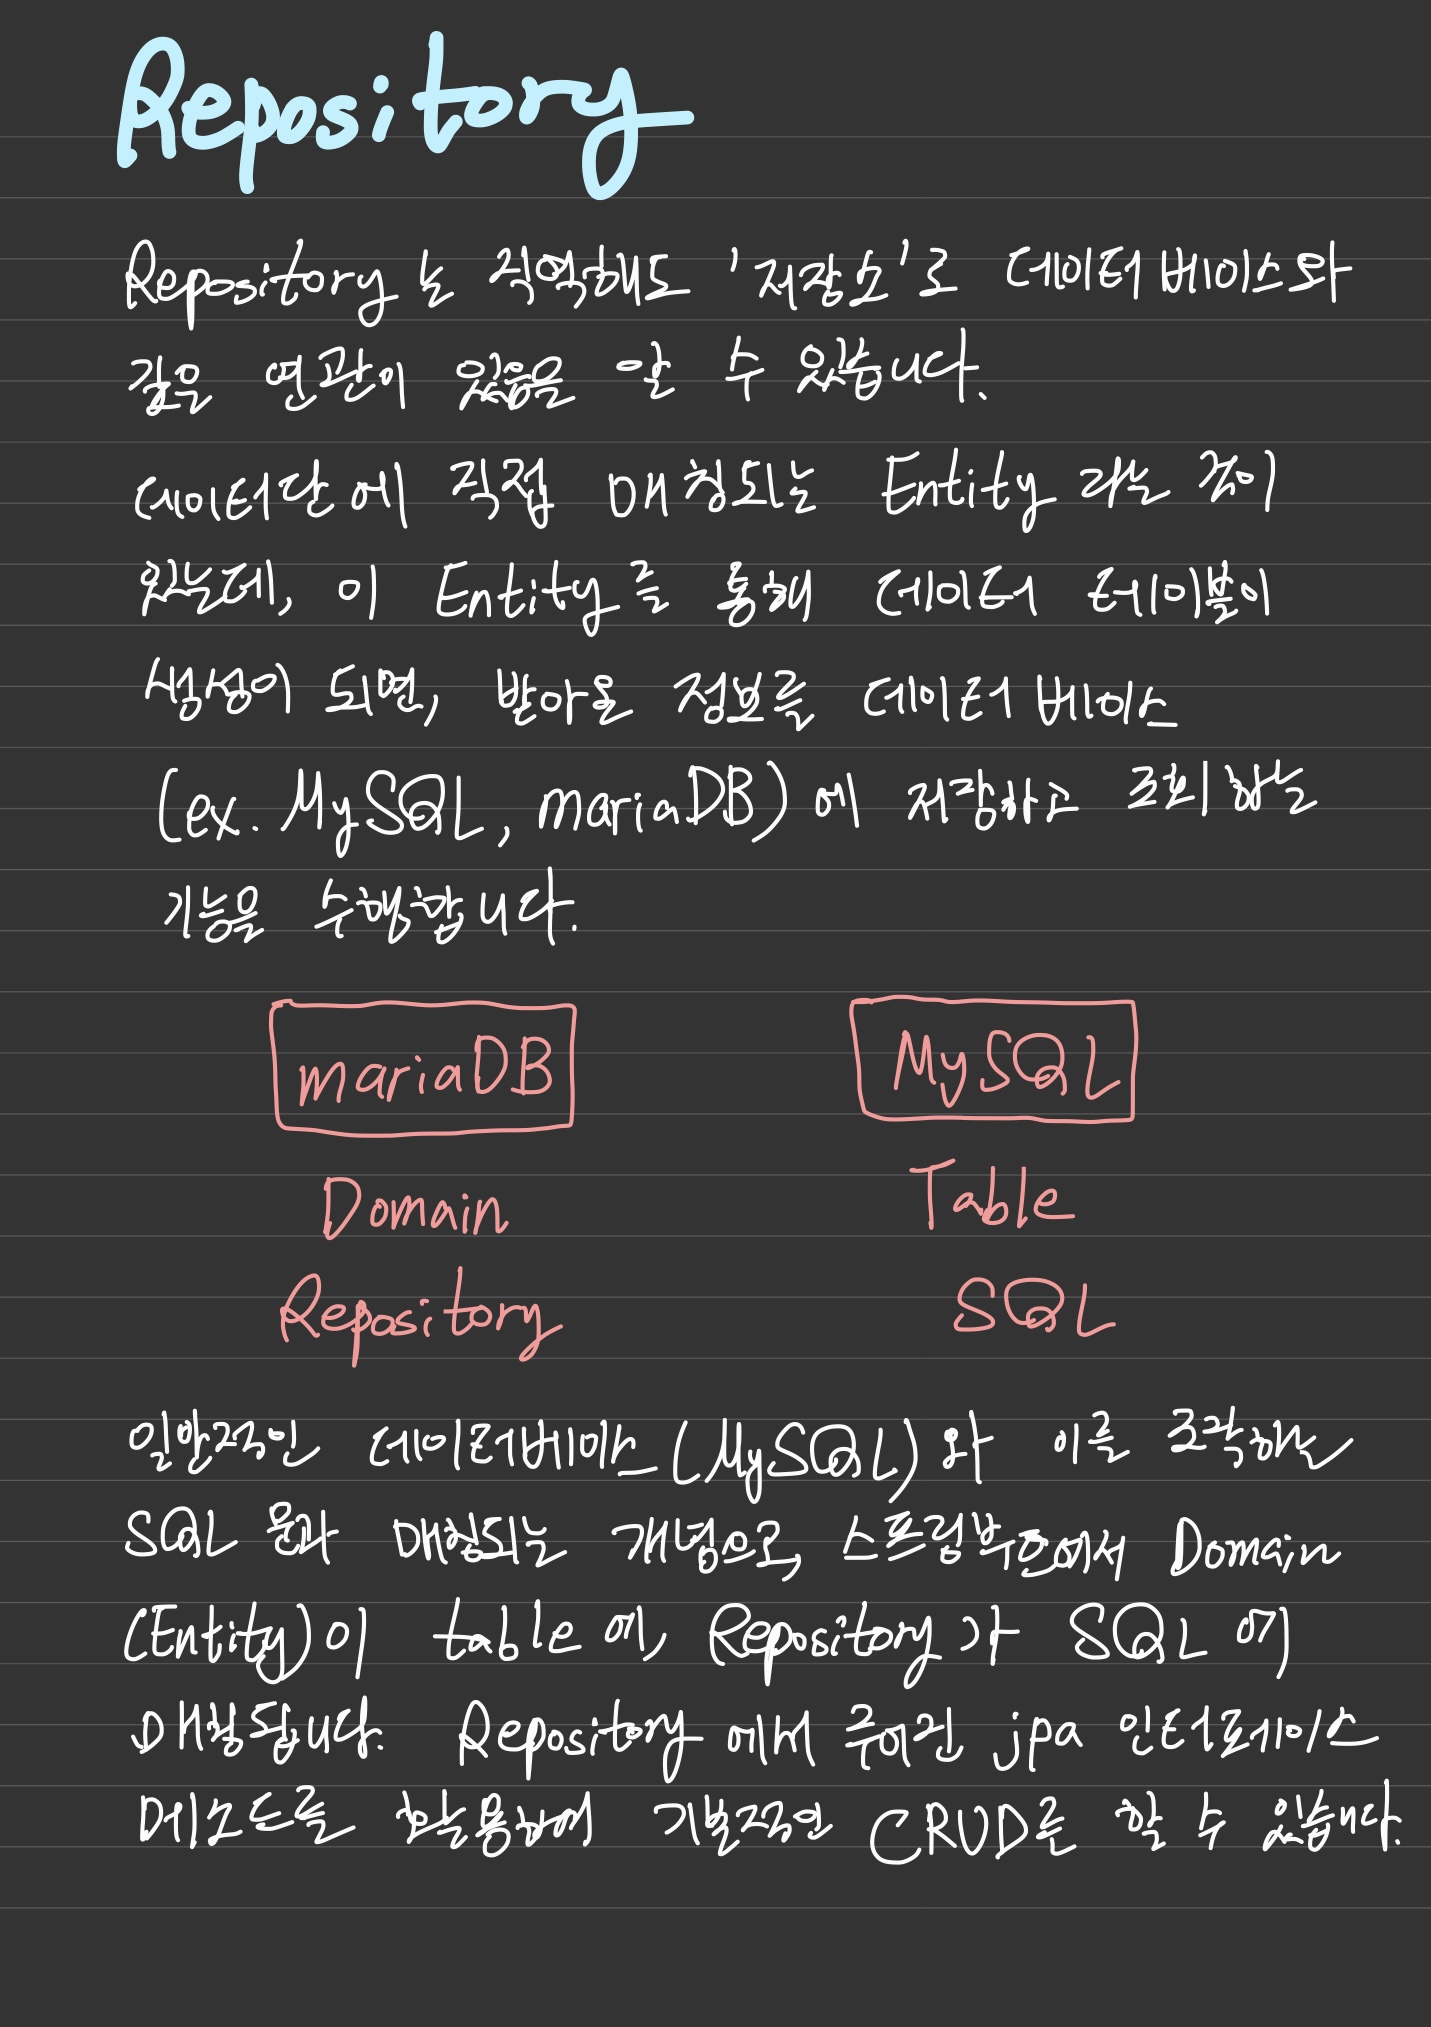 Repository
Repository는 직역해도 '저장소'로 데이터베이스와
깊은 연관이 있음을 알 수 있습니다.
데이터단에 직접 매칭되는 Entity 라는 것이
있는데, 이 Entity를 통해 데이터 테이블이
생성이 되면, 받아온 정보를 데이터베이스
(ex. MySQL, mariaDB)에 저장하고 조회하는
기능을 수행합니다.
mariaDB MySQL
Domain Table
Repository SQL
일반적인 데이터베이스(MySQL)와 이를 조작하는
SQL 문과 매칭되는 개념으로, 스프링부트에서 Domain
(Entity)이 table에, Repository가 SQL에
매칭됩니다. Repository에서 주어진 jpa 인터페이스
메소드를 활용하여 기본적인 CRUD를 할 수 있습니다.